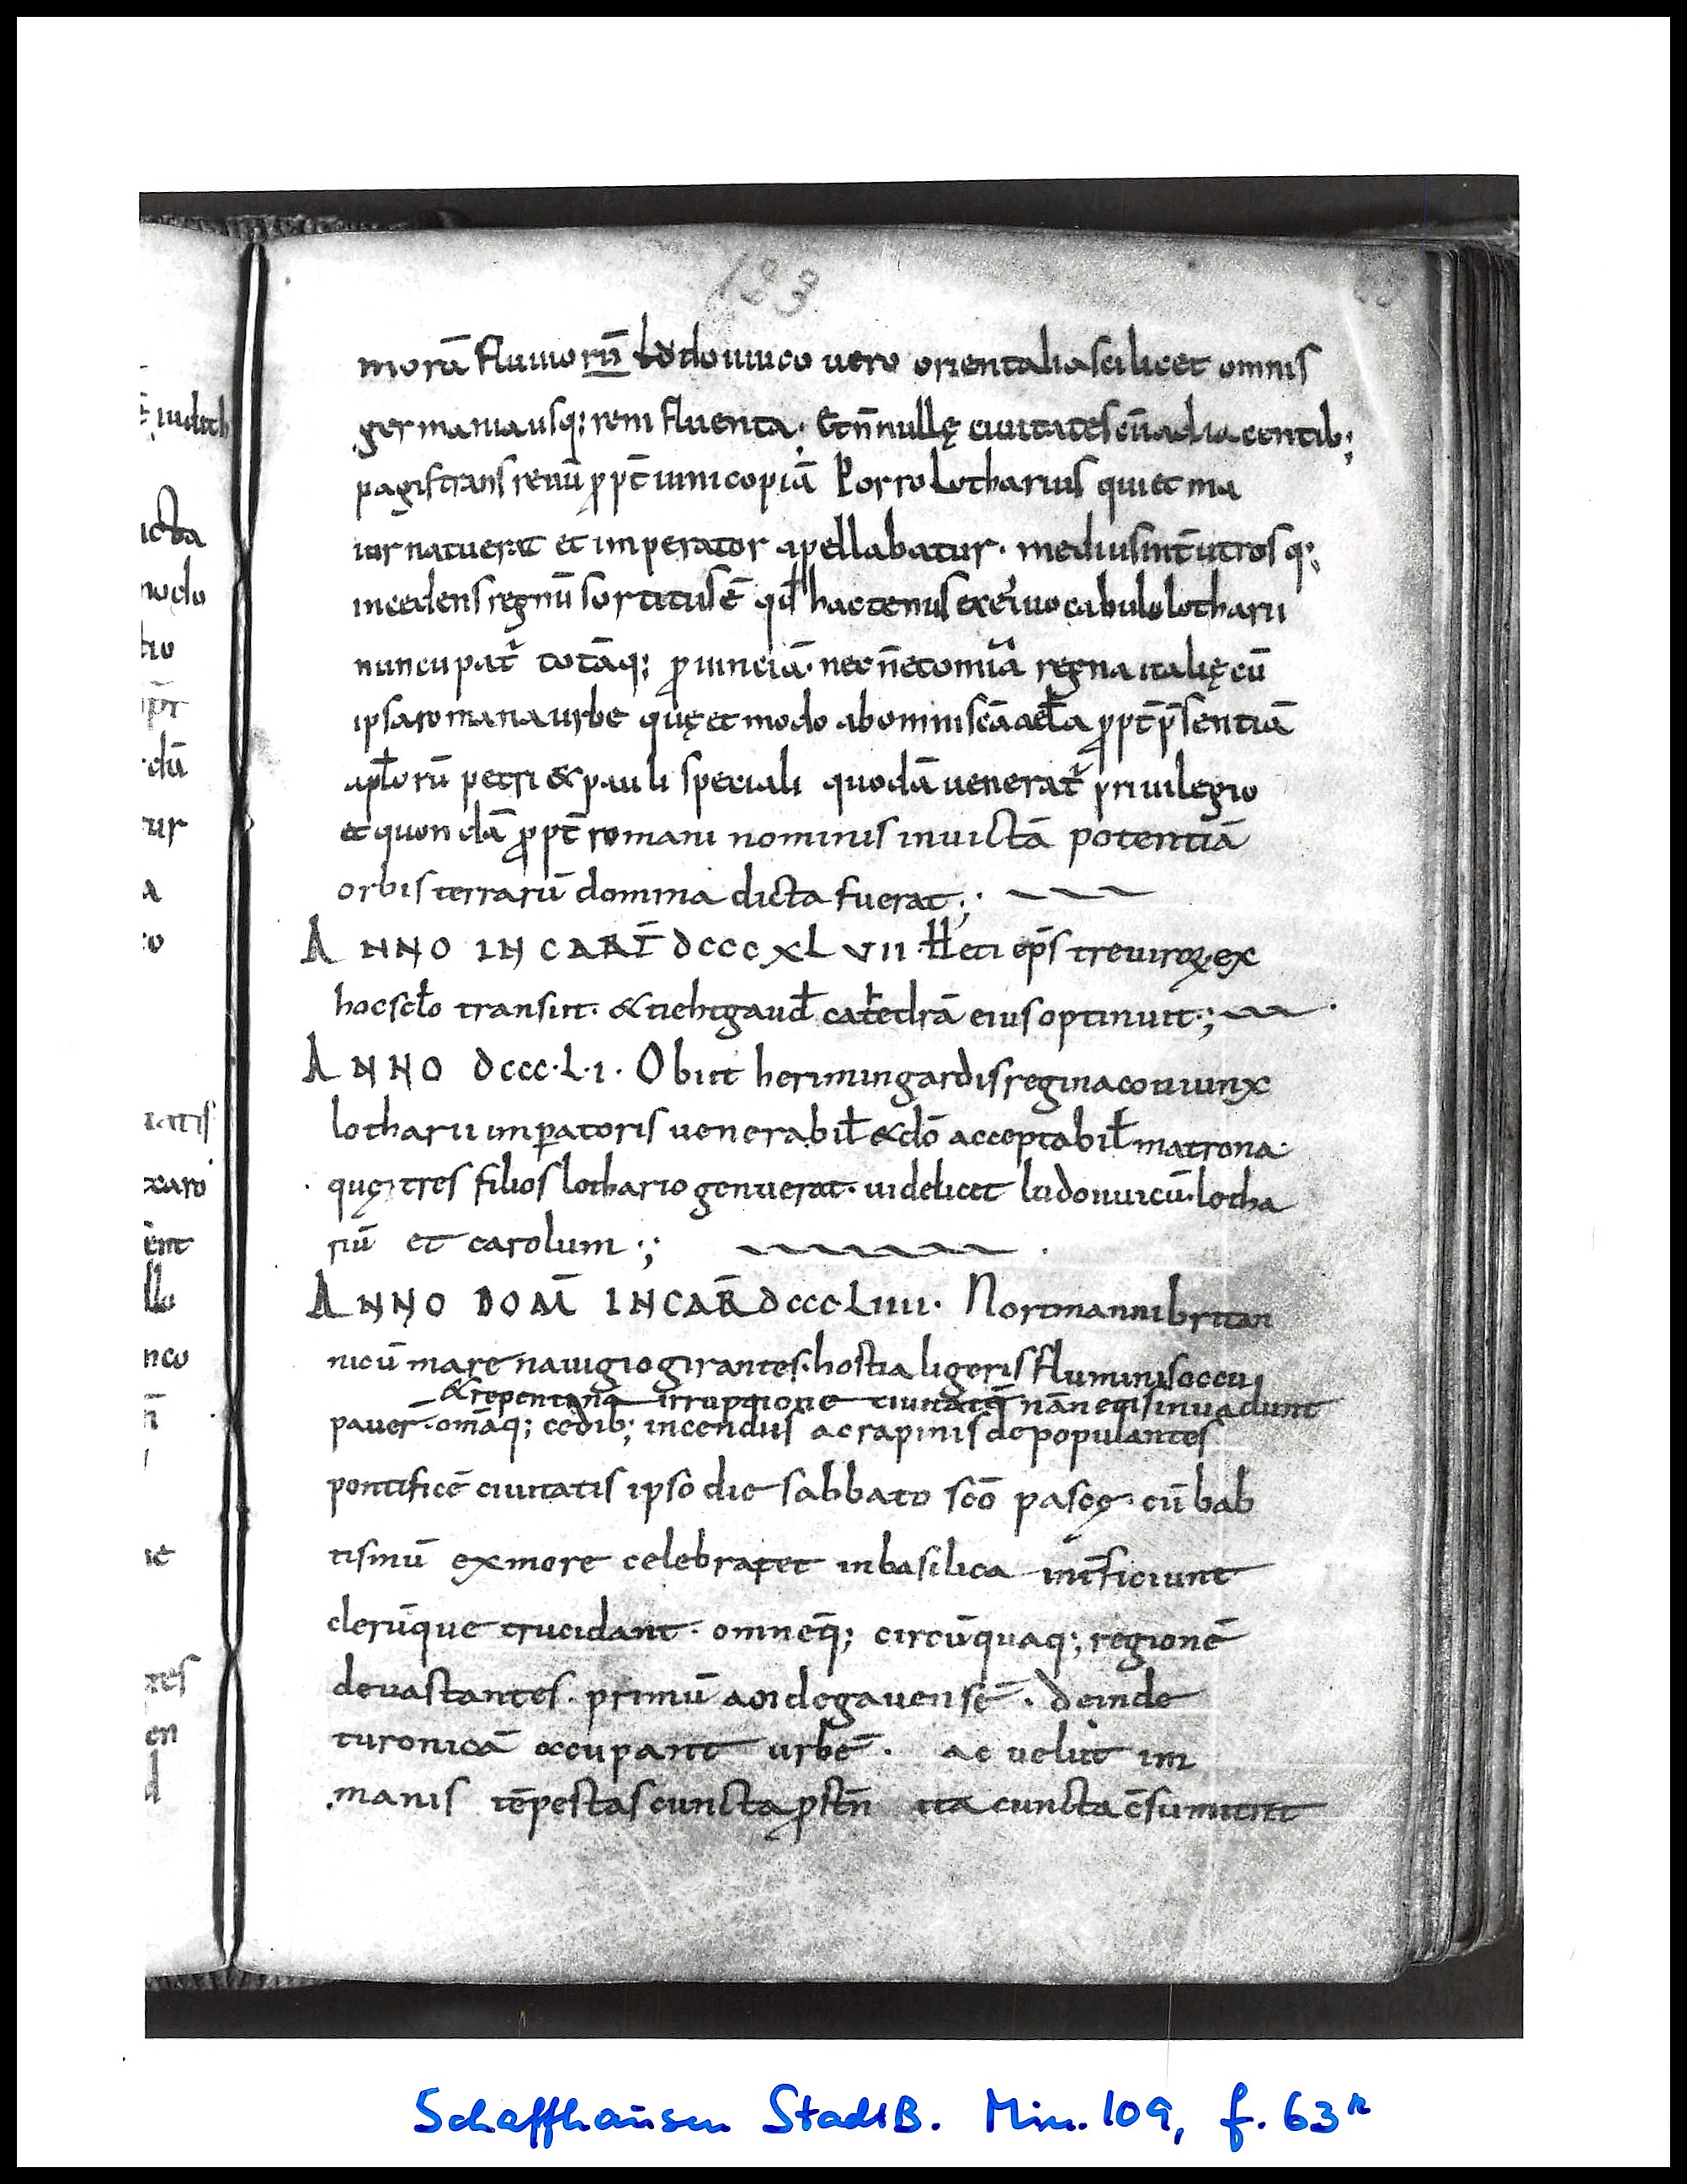 133
morū fluuiorū Lodouuico uero orientalia scilicet omnis
germania usq; reni fluenta. Et nn̄ullę ciuitates cū adiacentib;
pagis trans renū ꝓpt̄ uini copiā Porro Lotharius qui et ma
ior natu erat et imperator apellabatur. medius int̄ utrosq;
incedens regnū sortitus ē qđ hactenus ex eı̓ uocabulo lotharii
nuncupat̓ totāq; ꝓuinciā. nec n̄ et omīa regna italię cū
ipsa romana urbe quę et modo ab omni scā aecła ꝓpt̄ p̄sentiā
apłorū petri & pauli speciali quodā uenerat̓ priuilegio
et quondā ꝓpt̄ romani nominis inuictā potentiā
orbis terrarū domina dicta fuerat;
ANNO INCARN̄ DCCCXLVII. Hetti ep̄s treuiroꝝ ex
hoc scło transiit. & tiehtgauđ cathedrā eius optinuit;
ANNO DCCC.L.I. Obiit herimingardis regina coniunx
lotharii imꝑatoris uenerabił & dō acceptabił matrona.
quę tres filios lothario genuerat. uidelicet ludouuicū. lotha
riū et carolum;
ANNO DOM̄ INCAR̄ DCCCLIIII. Nortmanni britan
nicū mare nauigio girantes. hostia ligeris fluminis occu
& repentina irruptione ciuitatē nānetis inuadunt
pauer̄. omāq; cedib; incendiis ac rapinis depopulantes
pontificē ciuitatis ipso die sabbato scō pascę. cū bab
tismū ex more celebraret in basilica int̄ficiunt
clerūque trucidant. omnēq; circūquaq; regionē
deuastantes. primū andegauensē. deinde
turonicā occupant urbē. ac uelut im
manis tēpestas cuncta ꝓstn̄ ita cuncta c̄sumunt
ę iudith
icta
modo
tio
pr̄
dū
tur
a
o
iatis
xaro
ent
llo
nco
tes
en
Schaffhausen StadtB. Min. 109, f. 63r